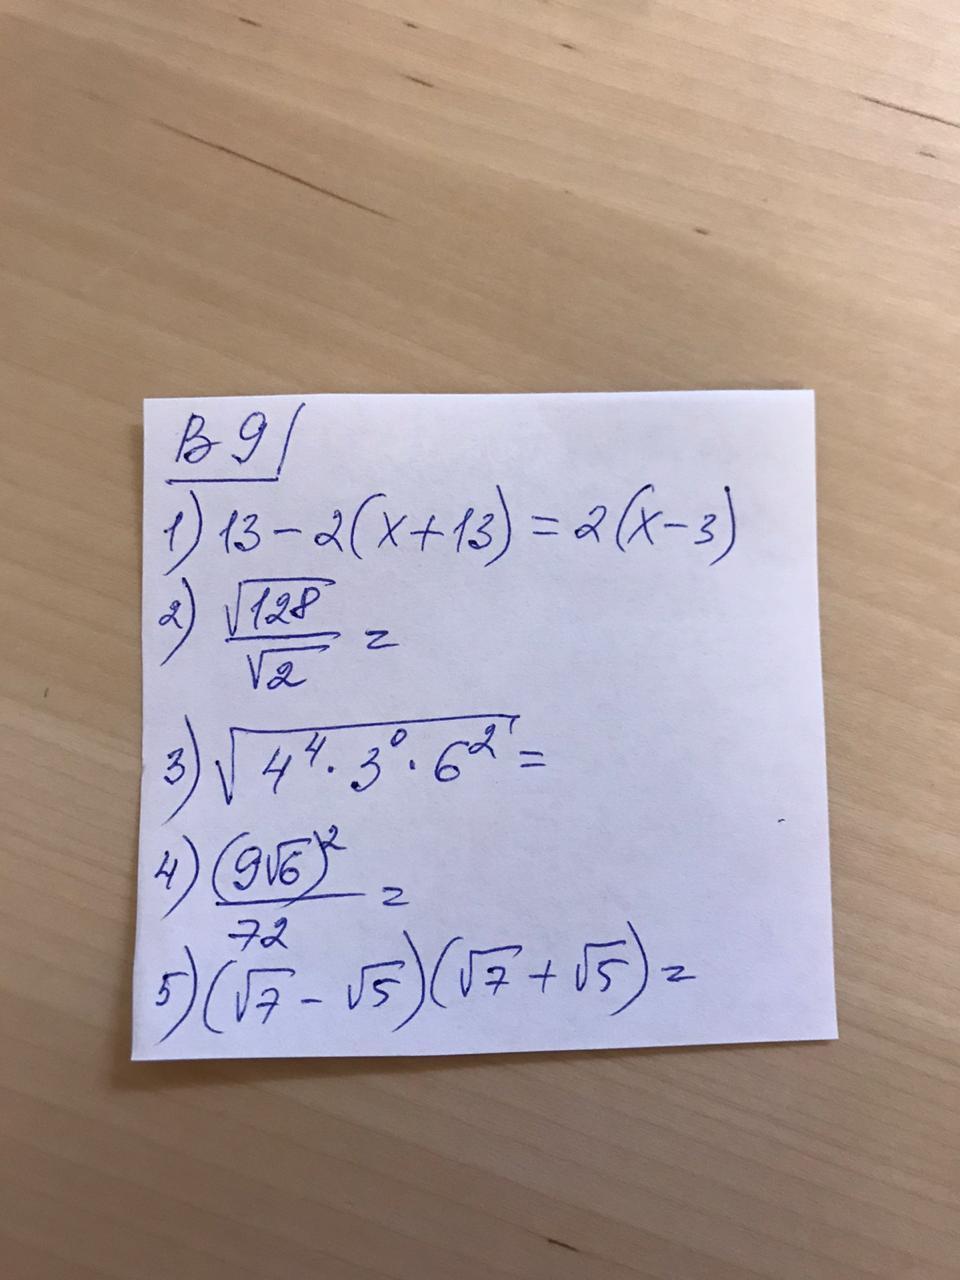 В 9
1) 13 - 2(x + 13) = 2(x - 3)
2) √128 / √2 =
3) √(4⁴ · 3⁰ · 6²) =
4) (9√6)² / 72 =
5) (√7 - √5)(√7 + √5) =